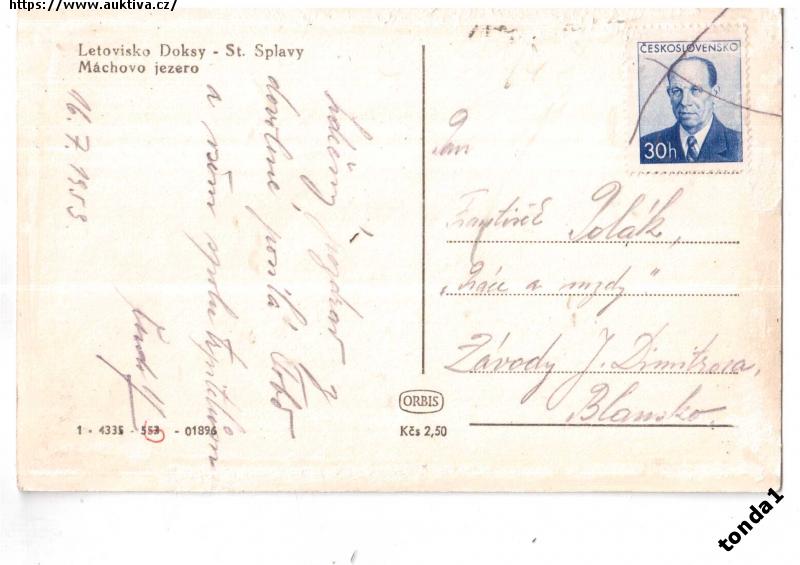 https://www.auktiva.cz/
Letovisko Doksy - St. Splavy
Máchovo jezero
16. 7. 1953
srdečný pozdrav z
dovolené posílá
a všem spolu
ČESKOSLOVENSKO
30h
Pan
František Polák,
„Práce a mzdy"
Závody J. Dimitrova,
Blansko.
ORBIS
Kčs 2,50
1 - 4335 - 553 - 01896
tonda1